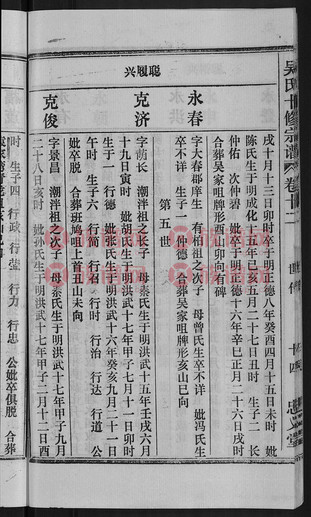 吴氏十修宗谱 卷十二 世传 十四 忠义堂
戌十月十三日卯时卒于明正德八年癸酉四月十五日未时 妣
陈氏生于明成化五年己丑十二月二十七日丑时 生子二 长
仲佑 次仲碧 妣卒于明正德十六年辛巳正月二十六日戌时
合葬吴家咀牌形酉山卯向有碑
永春
字大春郡庠生 有相祖之次子 母曾氏生卒不详 妣冯氏生
卒不详 生子一 仲德 合葬吴家咀牌形亥山巳向
第五世
聪履兴
克济
字荫长 潮泮祖之长子 母秦氏生于明洪武十五年壬戌六月
十九日寅时 妣张氏生于明洪武十七年甲子七月十一日卯时
生于一 行德 妣张氏生于明洪武十六年癸亥九月二十一日
午时 生子六 行简 行召 行时 行治 行达 行道 公
妣卒俱脱 合葬班鸠咀上首丑山未向
克俊
字景昌 潮泮祖之次子 母秦氏生于明洪武十七年甲子九月
二十八日亥时 妣孙氏生于明洪武十七年甲子二月十二日酉
时 生子四 行政 行莹 行力 行忠 公妣卒俱脱 合葬